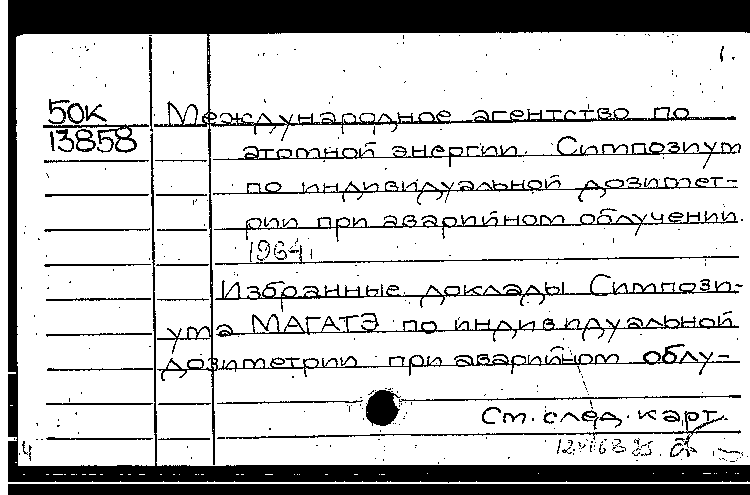 1.
50к
13858
Международное агентство по
атомной энергии. Симпозиум
по индивидуальной дозимет-
рии при аварийном облучении.
1964.
Избранные доклады Симпози-
ума МАГАТЭ по индивидуальной
дозиметрии при аварийном облу-
См. след. карт.
4